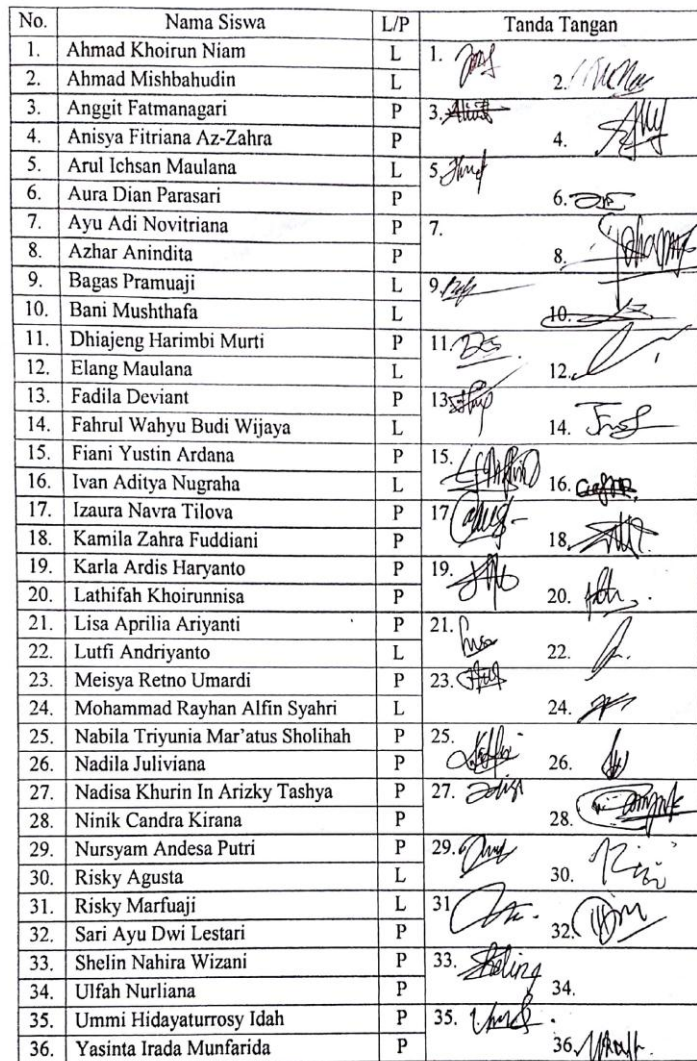 No. Nama Siswa L/P Tanda Tangan
1. Ahmad Khoirun Niam L 1.
2. Ahmad Mishbahudin L 2.
3. Anggit Fatmanagari P 3.
4. Anisya Fitriana Az-Zahra P 4.
5. Arul Ichsan Maulana L 5.
6. Aura Dian Parasari P 6.
7. Ayu Adi Novitriana P 7.
8. Azhar Anindita P 8.
9. Bagas Pramuaji L 9.
10. Bani Mushthafa L 10.
11. Dhiajeng Harimbi Murti P 11.
12. Elang Maulana L 12.
13. Fadila Deviant P 13.
14. Fahrul Wahyu Budi Wijaya L 14.
15. Fiani Yustin Ardana P 15.
16. Ivan Aditya Nugraha L 16.
17. Izaura Navra Tilova P 17.
18. Kamila Zahra Fuddiani P 18.
19. Karla Ardis Haryanto P 19.
20. Lathifah Khoirunnisa P 20.
21. Lisa Aprilia Ariyanti P 21.
22. Lutfi Andriyanto L 22.
23. Meisya Retno Umardi P 23.
24. Mohammad Rayhan Alfin Syahri L 24.
25. Nabila Triyunia Mar'atus Sholihah P 25.
26. Nadila Juliviana P 26.
27. Nadisa Khurin In Arizky Tashya P 27.
28. Ninik Candra Kirana P 28.
29. Nursyam Andesa Putri P 29.
30. Risky Agusta L 30.
31. Risky Marfuaji L 31
32. Sari Ayu Dwi Lestari P 32.
33. Shelin Nahira Wizani P 33.
34. Ulfah Nurliana P 34.
35. Ummi Hidayaturrosy Idah P 35.
36. Yasinta Irada Munfarida P 36.